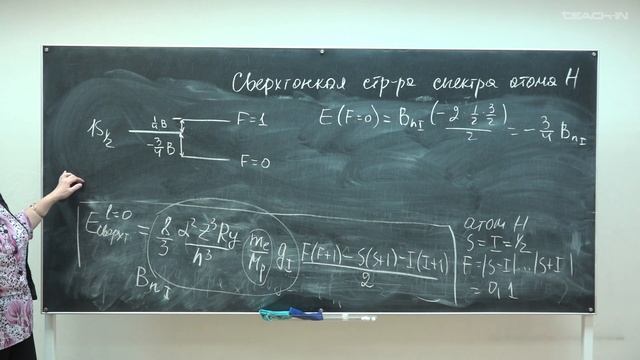 TEACH-IN
Сверхтонкая стр-ра спектра атома H
1S½ ¼B F=1
-¾B F=0
E(F=0) = B_{nI} (-2·½·3/2)/2 = -¾ B_{nI}
E_{сверхт}^{l=0} = 8/3 α²Z³Ry/n³ (m_e/M_p) g_I (F(F+1) - S(S+1) - I(I+1))/2
B_{nI}
атом H
S = I = ½
F = |S-I|...|S+I|
= 0,1